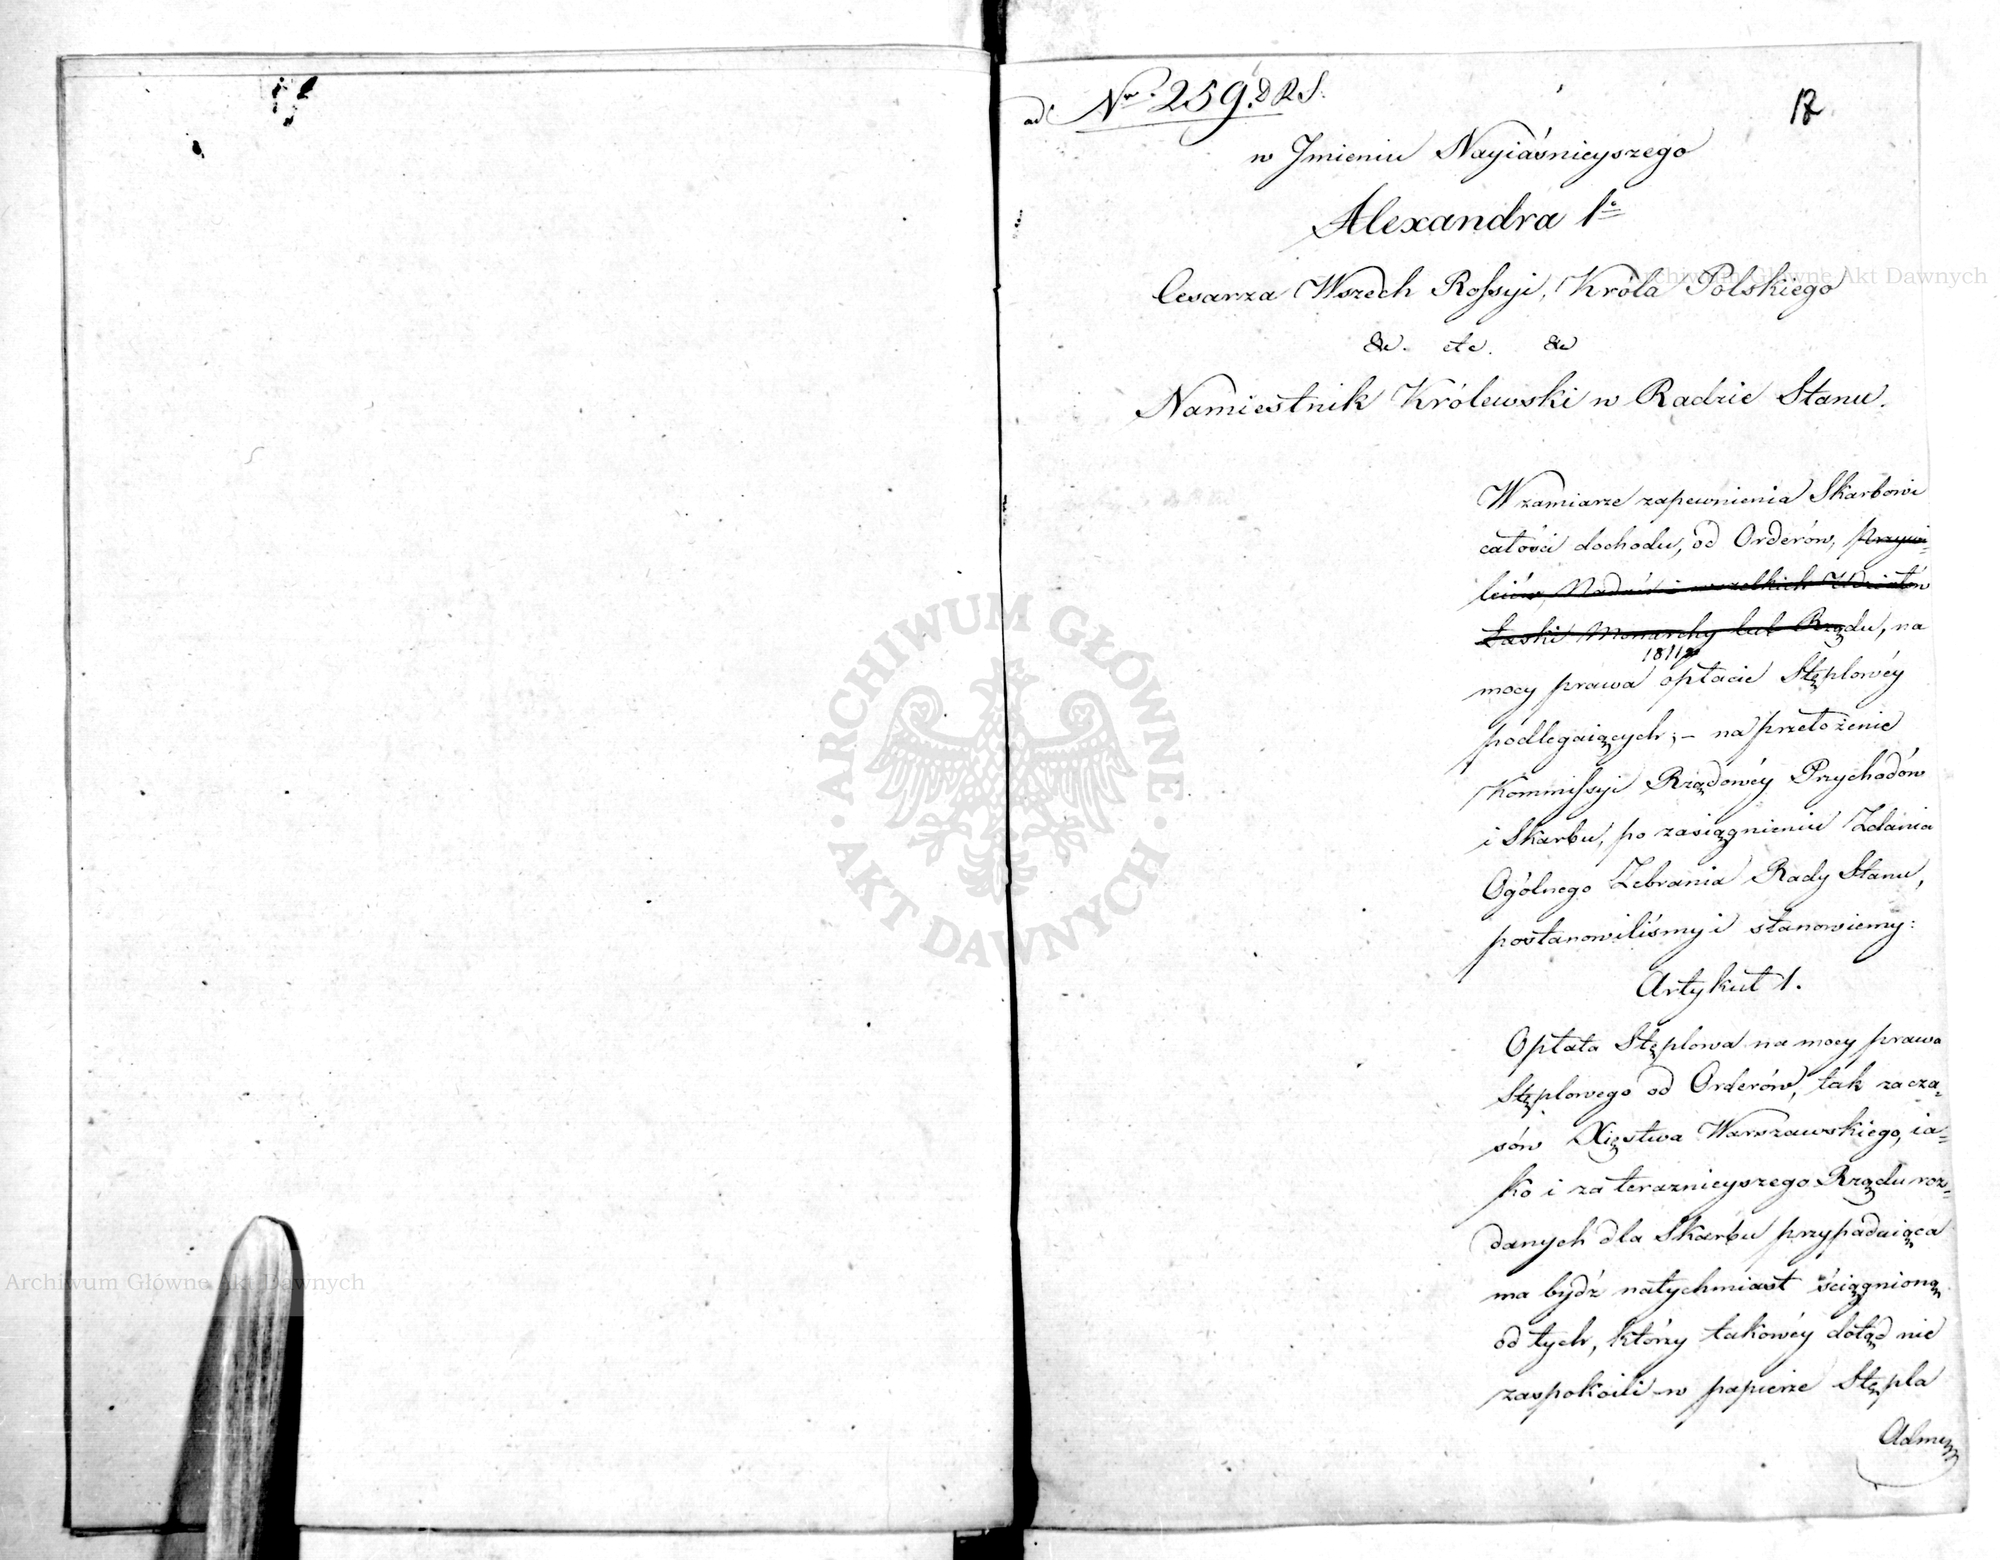 ad Nr. 259. D R S.
12
w Jmieniu Nayiaśnieyszego
Alexandra 1o
Cesarza Wszech Rossyi, Króla Polskiego
&c. etc. &c
Namiestnik Królewski w Radzie Stanu.
W zamiarze zapewnienia Skarbowi
całości dochodu, od Orderów, Przywi-
leiów, Nadań i wszelkich Udziałów
Łaski Monarchy lub Rządu, na
1811
mocy prawa opłacie Stęplowéy
podlegaiących; – na przełożenie
Kommissyi Rządowéy Przychodów
i Skarbu, po zasiągnieniu Zdania
Ogólnego Zebrania Rady Stanu,
postanowiliśmy i stanowiemy:
Artykuł 1.
Opłata Stęplowa na mocy prawa
Stęplowego od Orderów, tak za cza-
sów Xięstwa Warszawskiego, ia-
ko i za teraznieyszego Rządu roz-
danych dla Skarbu przypadaiąca
ma bydź natychmiast ściągnioną
od tych, którzy takowéy dotąd nie
zaspokoili w papierze Stępla
Archiwum Główne Akt Dawnych
ARCHIWUM GŁÓWNE
AKT DAWNYCH
Archiwum Główne Akt Dawnych